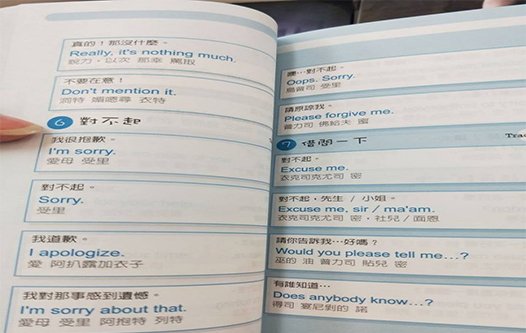 真的!那沒什麼。
Really, it's nothing much.
銳力,以次 那幸 罵取
不要在意!
Don't mention it.
洞特 媚嗯尋 衣特
6 對不起
我很抱歉。
I'm sorry.
愛母 受里
對不起。
Sorry.
受里
我道歉。
I apologize.
愛 阿扒露加衣子
我對那事感到遺憾。
I'm sorry about that.
愛母 受里 阿抱特 列特
噢…對不起。
Oops. Sorry.
烏普司 受里
請原諒我。
Please forgive me.
普力司 佛給夫 蜜
7 借問一下
Trac
對不起。
Excuse me.
衣克司克尤司 密
對不起,先生/小姐。
Excuse me, sir / ma'am.
衣克司克尤司 密,社兒/面恩
請你告訴我…好嗎?
Would you please tell me...?
巫的 油 普力司 貼兒 密
有誰知道…
Does anybody know...?
得司 宴尼剝的 諾